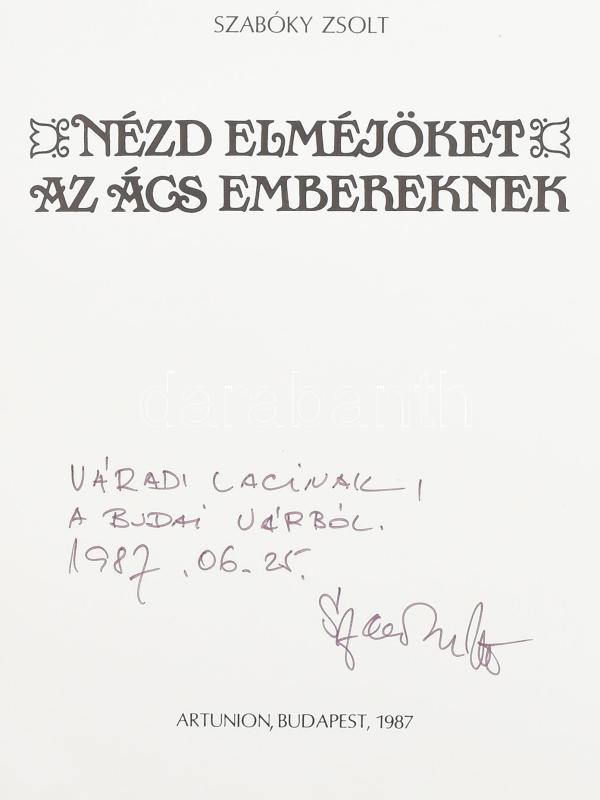 SZABÓKY ZSOLT
NÉZD ELMÉJÖKET
AZ ÁCS EMBEREKNEK
darabanth
VÁRADI LACINAK,
A BUDAI VÁRBÓL.
1987.06.25.
ARTUNION, BUDAPEST, 1987